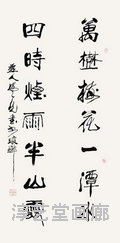 萬樹梅花一潭水
四時煙雨半山雲
淳光堂画廊